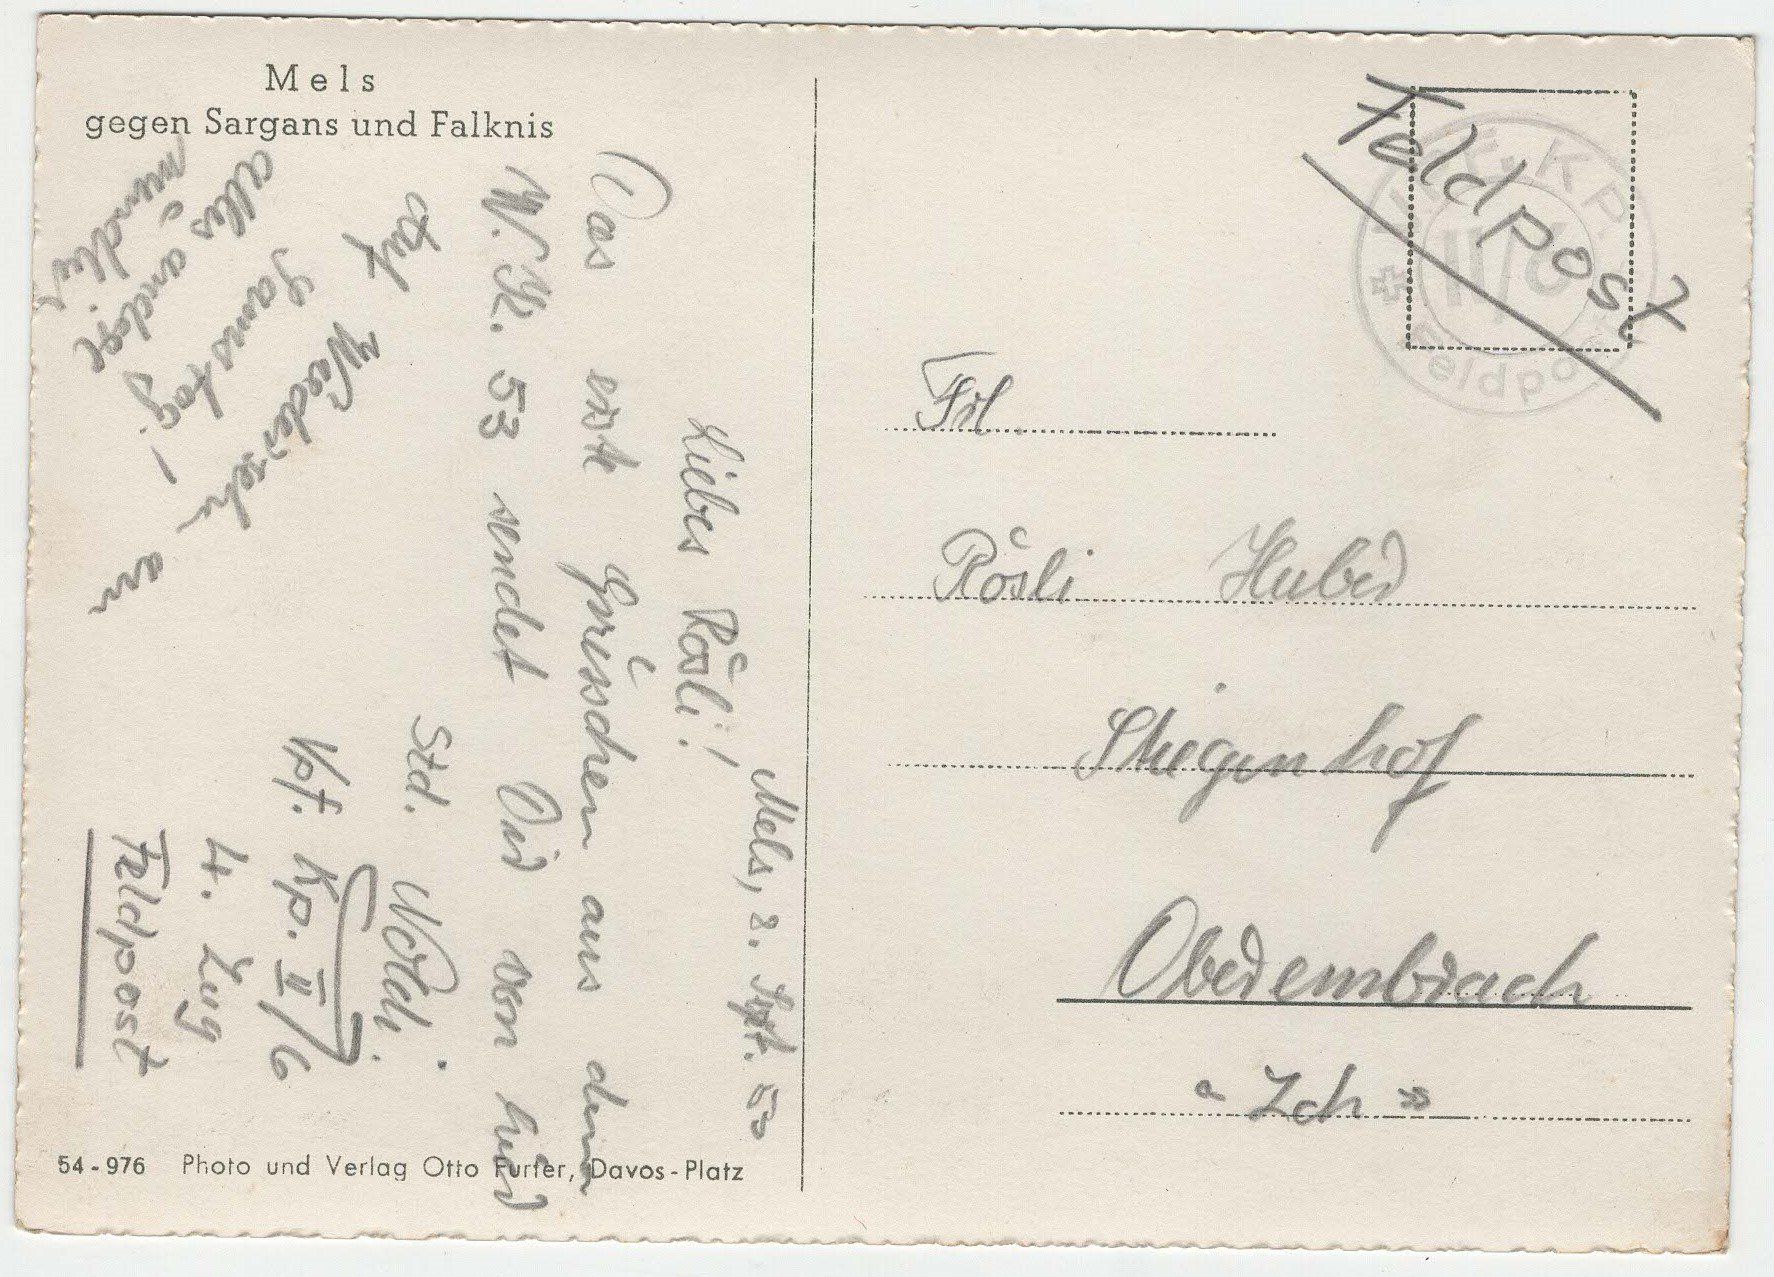 Mels
gegen Sargans und Falknis
Mels, 2. Spt. 53
Liebes Rösli!
Das erste Grüsschen aus dem
W.K. 53 sendet Dir von hier
Auf Wiedersehn am
Samstag!
alles andere
mündlich
Std. Noldi.
Vpf. Kp. II/6
4. Zug
Feldpost
54-976 Photo und Verlag Otto Furter, Davos-Platz
Feldpost
KP.
II/6
Feldpost
Frl.
Rösli Huber
Stiegenhof
Oberembrach
"Zch"